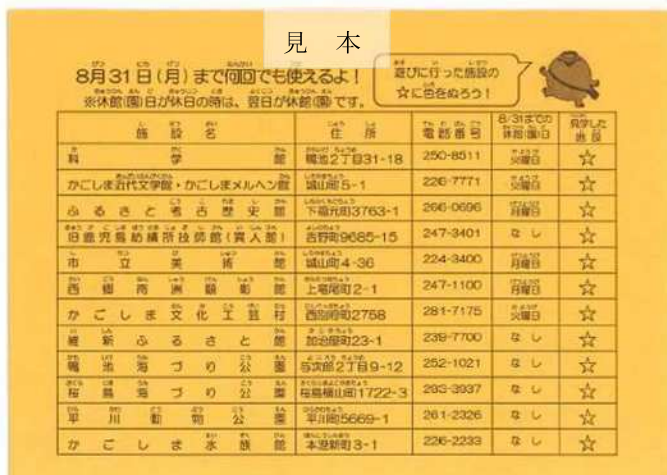 見 本
8月31日(月)まで何回でも使えるよ！
※休館(園)日が休日の時は、翌日が休館(園)です。
遊びに行った施設の
☆に色をぬろう！
施設名 住所 電話番号 8/31までの休館(園)日 見学した施設
科学館 鴨池2丁目31-18 250-8511 火曜日 ☆
かごしま近代文学館・かごしまメルヘン館 城山町5-1 226-7771 火曜日 ☆
ふるさと考古歴史館 下福元町3763-1 266-0696 月曜日 ☆
旧鹿児島紡績所技師館(異人館) 吉野町9685-15 247-3401 なし ☆
市立美術館 城山町4-36 224-3400 月曜日 ☆
西郷南洲顕彰館 上竜尾町2-1 247-1100 月曜日 ☆
かごしま文化工芸村 西別府町2758 281-7175 火曜日 ☆
維新ふるさと館 加治屋町23-1 239-7700 なし ☆
鴨池海づり公園 与次郎2丁目9-12 252-1021 なし ☆
桜島海づり公園 桜島横山町1722-3 293-3937 なし ☆
平川動物公園 平川町5669-1 261-2326 なし ☆
かごしま水族館 本港新町3-1 226-2233 なし ☆